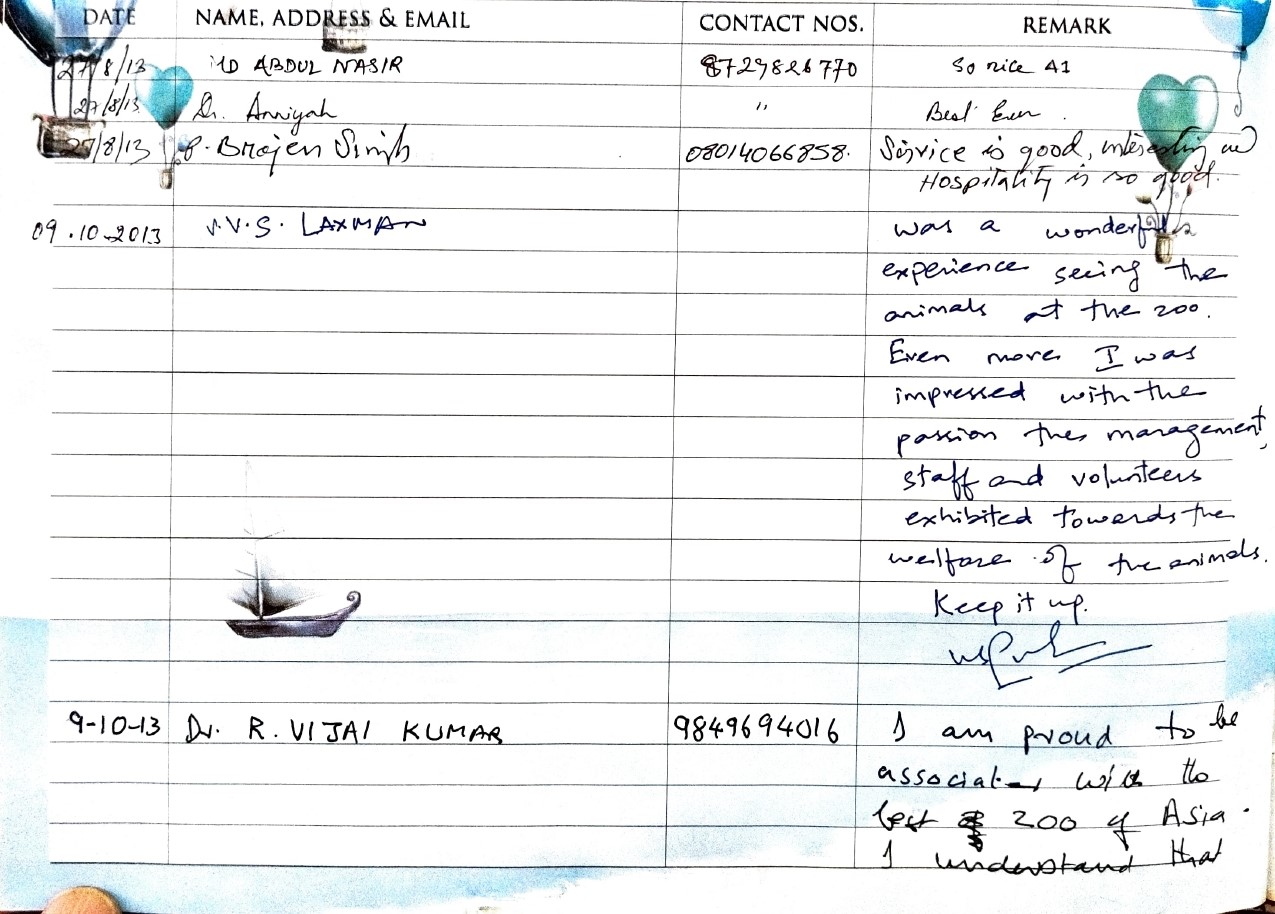 DATE NAME, ADDRESS & EMAIL CONTACT NOS. REMARK
27/8/13 MD ABDUL NASIR 8729826770 So nice A1
27/8/13 Dr. " Best Ever.
27/8/13 Brojen Singh 08014066858. Service is good, interesting and
Hospitality is so good.
09.10.2013 V.V.S. LAXMAN was a wonderful
experience seeing the
animals at the zoo.
Even more I was
impressed with the
passion the management,
staff and volunteers
exhibited towards the
welfare of the animals.
Keep it up.
9-10-13 Dr. R. VIJAI KUMAR 9849694016 I am proud to be
associated with the
best zoo of Asia.
I understand that